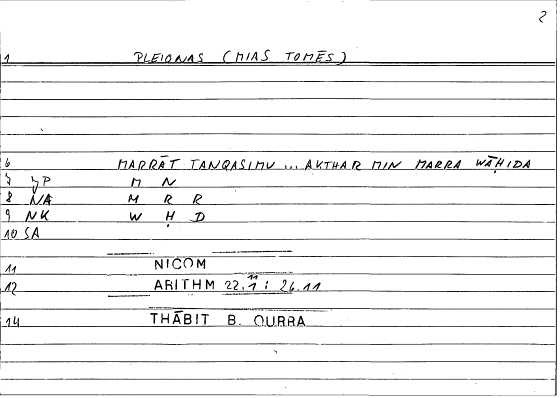 2
1 PLEIONAS (MIAS TOMĒS)
6 MARRĀT TANQASIMU ... AKTHAR MIN MARRA WĀḤIDA
7 M N
8 NA M R R
9 NK W Ḥ D
10 SA
11 NICOM
12 ARITHM 22.11 : 26.11
14 THĀBIT B. QURRA